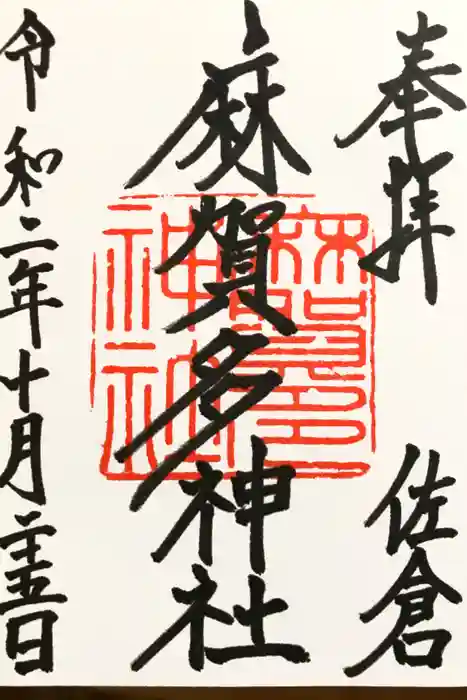 奉拝 佐倉
麻賀多神社
令和二年十月二十五日
麻賀多
神社